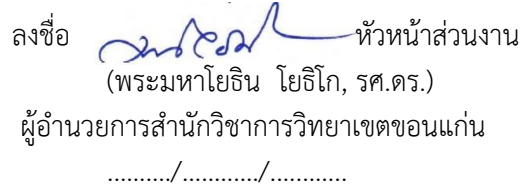 ลงชื่อ หัวหน้าส่วนงาน
(พระมหาโยธิน โยธิโก, รศ.ดร.)
ผู้อำนวยการสำนักวิชาการวิทยาเขตขอนแก่น
........../............/............